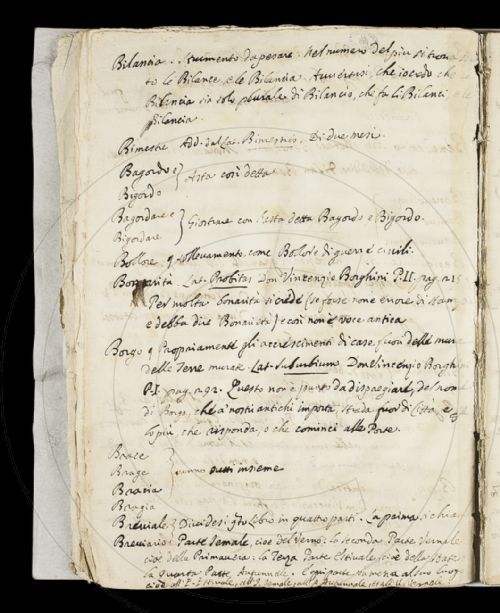 Bilancia. Strumento da pesare. Nel numero del piu si trova
to le Bilance, e le Bilancia. che io credo che
Bilancia sia solo plurale di Bilancio, che fa li Bilanci e le
Bilancia
Bimestre Add. dal Lat. Bimestris. Di due mesi.
Bagordo e } Asta così detta
Bigordo
Bagordare e } Giostrare con l'asta detta Bagordo e Bigordo.
Bigordare
Bollore sollevamento, come Bollore di guerre civili.
Bonarità. Lat. Probitas Don Vincenzio Borghini P. II. pag.
Per molta bonarità si crede (se forse non è errore di stam.
e debba dire Bonarietà) e così non è voce antica
Borgo Propriamente gli accrescimenti di case fuor delle mura
delle Terre murate Lat. Suburbium. Don Vincenzio Borghini
P. I. pag. Questo non è punto da dispregiare, del nome
di Borgo, che a' nostri antichi importa, strada fuor di Città, e
lo più, che risponda, o che cominci alle Porte.
Brace
Brage } vanno tutti insieme
Bracia
Bragia
Breviale } Dicidesi Libro in quattro parti. La prima si chia
Breviario } Parte Jemale, cioè del Verno: la seconda, Parte Vernale
cioè della Primavera: la Terza Parte Estivale, cioè della State
la Quarta Parte Autunnale.